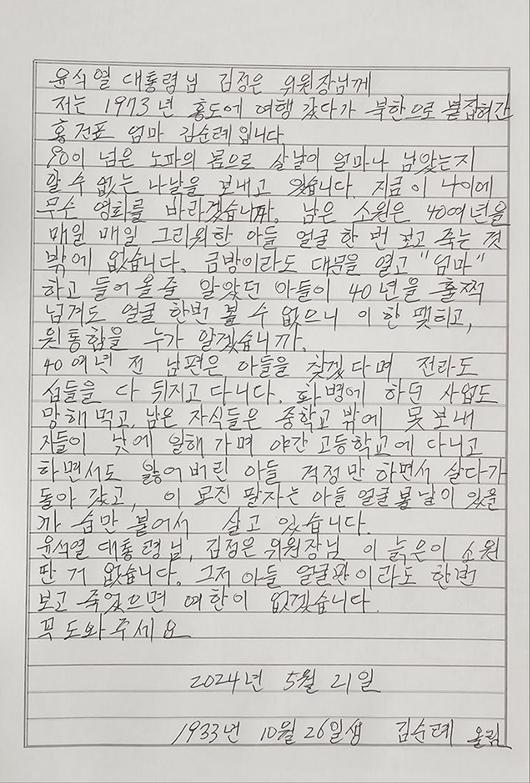 윤석열 대통령님 김정은 위원장님께
저는 1973년 홍도에 여행 갔다가 북한으로 붙잡혀간
홍건표 엄마 김순례입니다
90이 넘은 노파의 몸으로 살날이 얼마나 남았는지
알 수 없는 나날을 보내고 있습니다. 지금 이 나이에
무슨 영화를 바라겠습니까. 남은 소원은 40여년을
매일 매일 그리워한 아들 얼굴 한 번 보고 죽는 것
밖에 없습니다. 금방이라도 대문을 열고 "엄마"
하고 들어올줄 알았던 아들이 40년을 훌쩍
넘겨도 얼굴 한번 볼 수 없으니 이 한 맺히고,
원통함을 누가 알겠습니까.
40여년 전 남편은 아들을 찾겠다며 전라도
섬들을 다 뒤지고 다니다. 화병에 하던 사업도
망해먹고, 남은 자식들은 중학교 밖에 못보내
자들이 낮에 일해가며 야간 고등학교에 다니고
하면서도 잃어버린 아들 걱정만 하면서 살다가
돌아 갔고, 이 모진 팔자는 아들 얼굴볼날이 있을
까 숨만 붙어서 살고 있습니다.
윤석열 대통령님, 김정은 위원장님 이 늙은이 소원
딴 거 없습니다. 그저 아들 얼굴만이라도 한번
보고 죽었으면 여한이 없겠습니다.
꼭 도와주세요
2024년 5월 21일
1933년 10월 26일생 김순례 올림